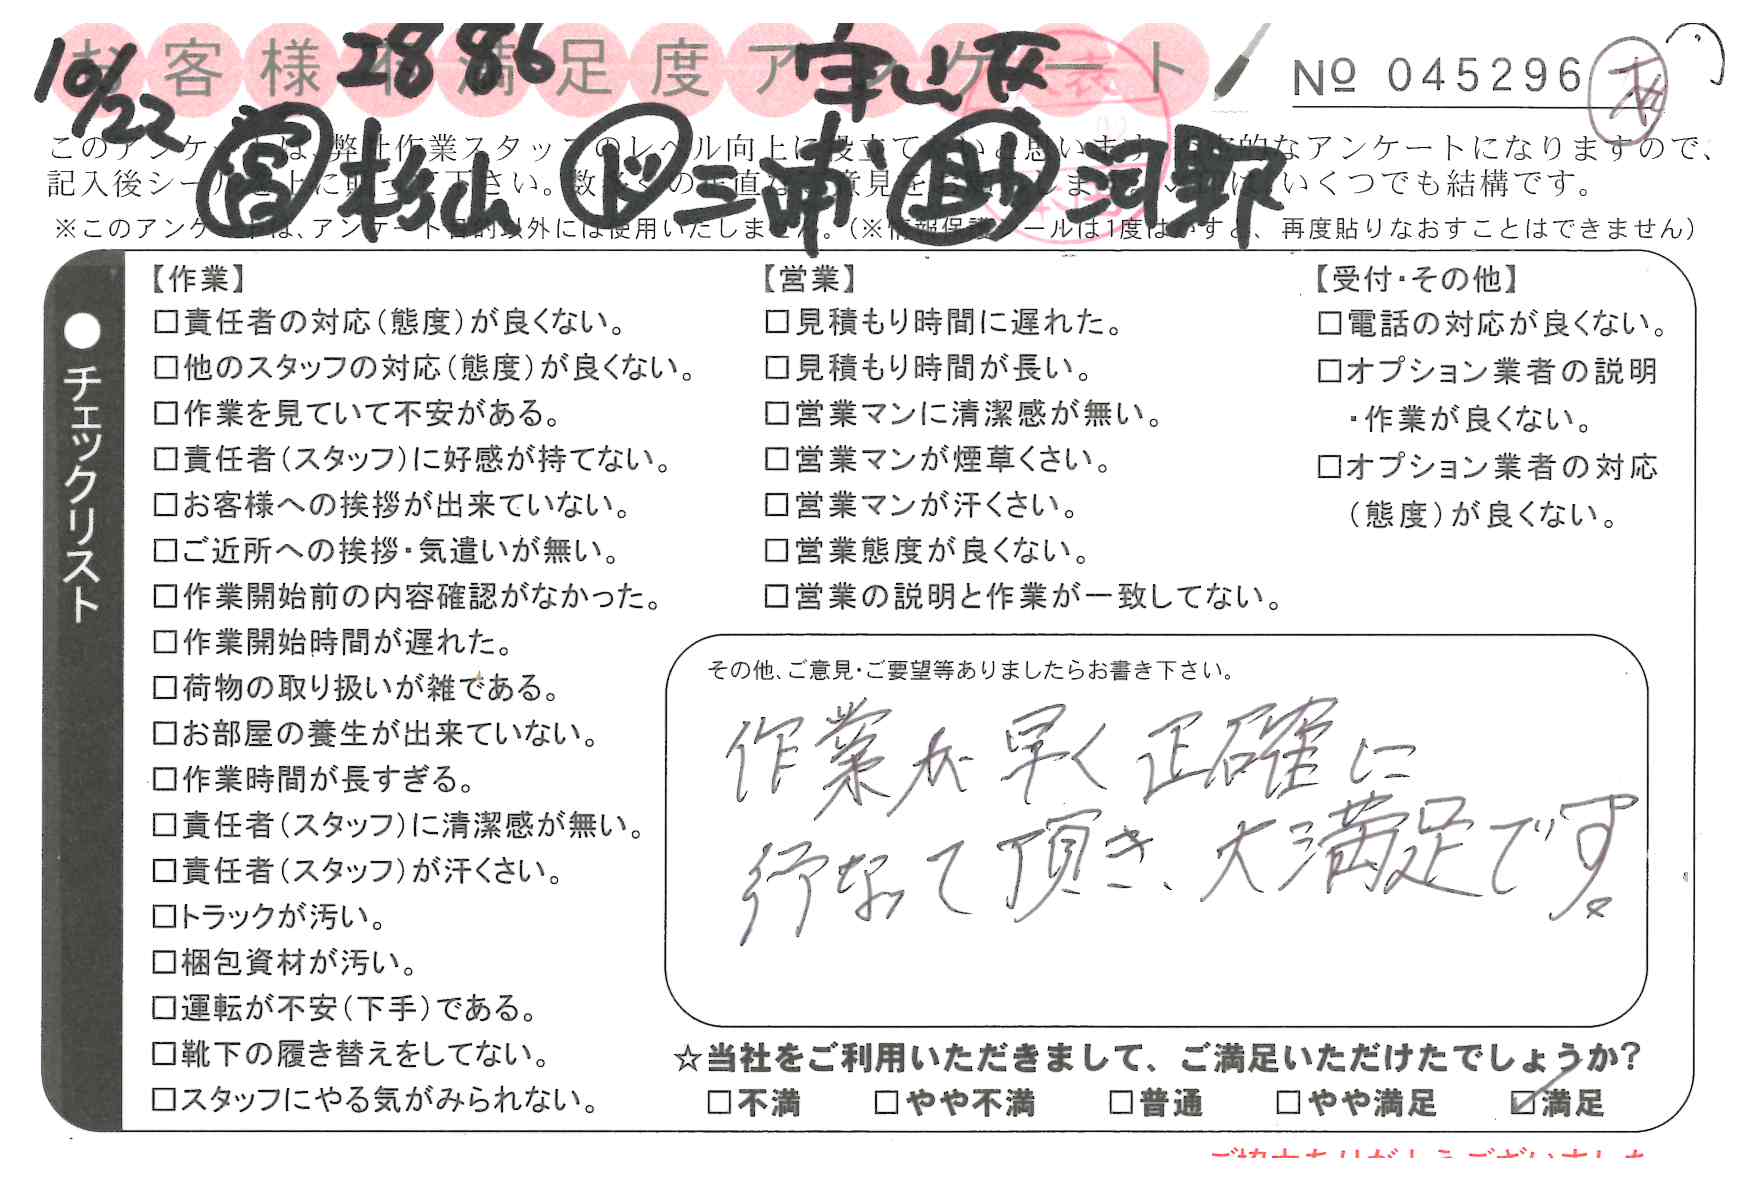 お客様不満足度アンケート
10/22 2886
No 045296
このアンケートは、弊社作業スタッフのレベル向上に役立てたいと思います。なアンケートになりますので、
記入後シール 下さい。 いくつでも結構です。
※このアンケートは、アンケート目的以外には使用いたしません。(※情報保護シールは1度はがすと、再度貼りなおすことはできません)
営 杉山 ド 三浦 助 河野
●チェックリスト
【作業】
□責任者の対応(態度)が良くない。
□他のスタッフの対応(態度)が良くない。
□作業を見ていて不安がある。
□責任者(スタッフ)に好感が持てない。
□お客様への挨拶が出来ていない。
□ご近所への挨拶・気遣いが無い。
□作業開始前の内容確認がなかった。
□作業開始時間が遅れた。
□荷物の取り扱いが雑である。
□お部屋の養生が出来ていない。
□作業時間が長すぎる。
□責任者(スタッフ)に清潔感が無い。
□責任者(スタッフ)が汗くさい。
□トラックが汚い。
□梱包資材が汚い。
□運転が不安(下手)である。
□靴下の履き替えをしてない。
□スタッフにやる気がみられない。
【営業】
□見積もり時間に遅れた。
□見積もり時間が長い。
□営業マンに清潔感が無い。
□営業マンが煙草くさい。
□営業マンが汗くさい。
□営業態度が良くない。
□営業の説明と作業が一致してない。
【受付・その他】
□電話の対応が良くない。
□オプション業者の説明
・作業が良くない。
□オプション業者の対応
(態度)が良くない。
その他、ご意見・ご要望等ありましたらお書き下さい。
作業が早く正確に
行なって頂き、大満足です。
☆当社をご利用いただきまして、ご満足いただけたでしょうか?
□不満 □やや不満 □普通 □やや満足 ☑満足
ご協力ありがとうございました